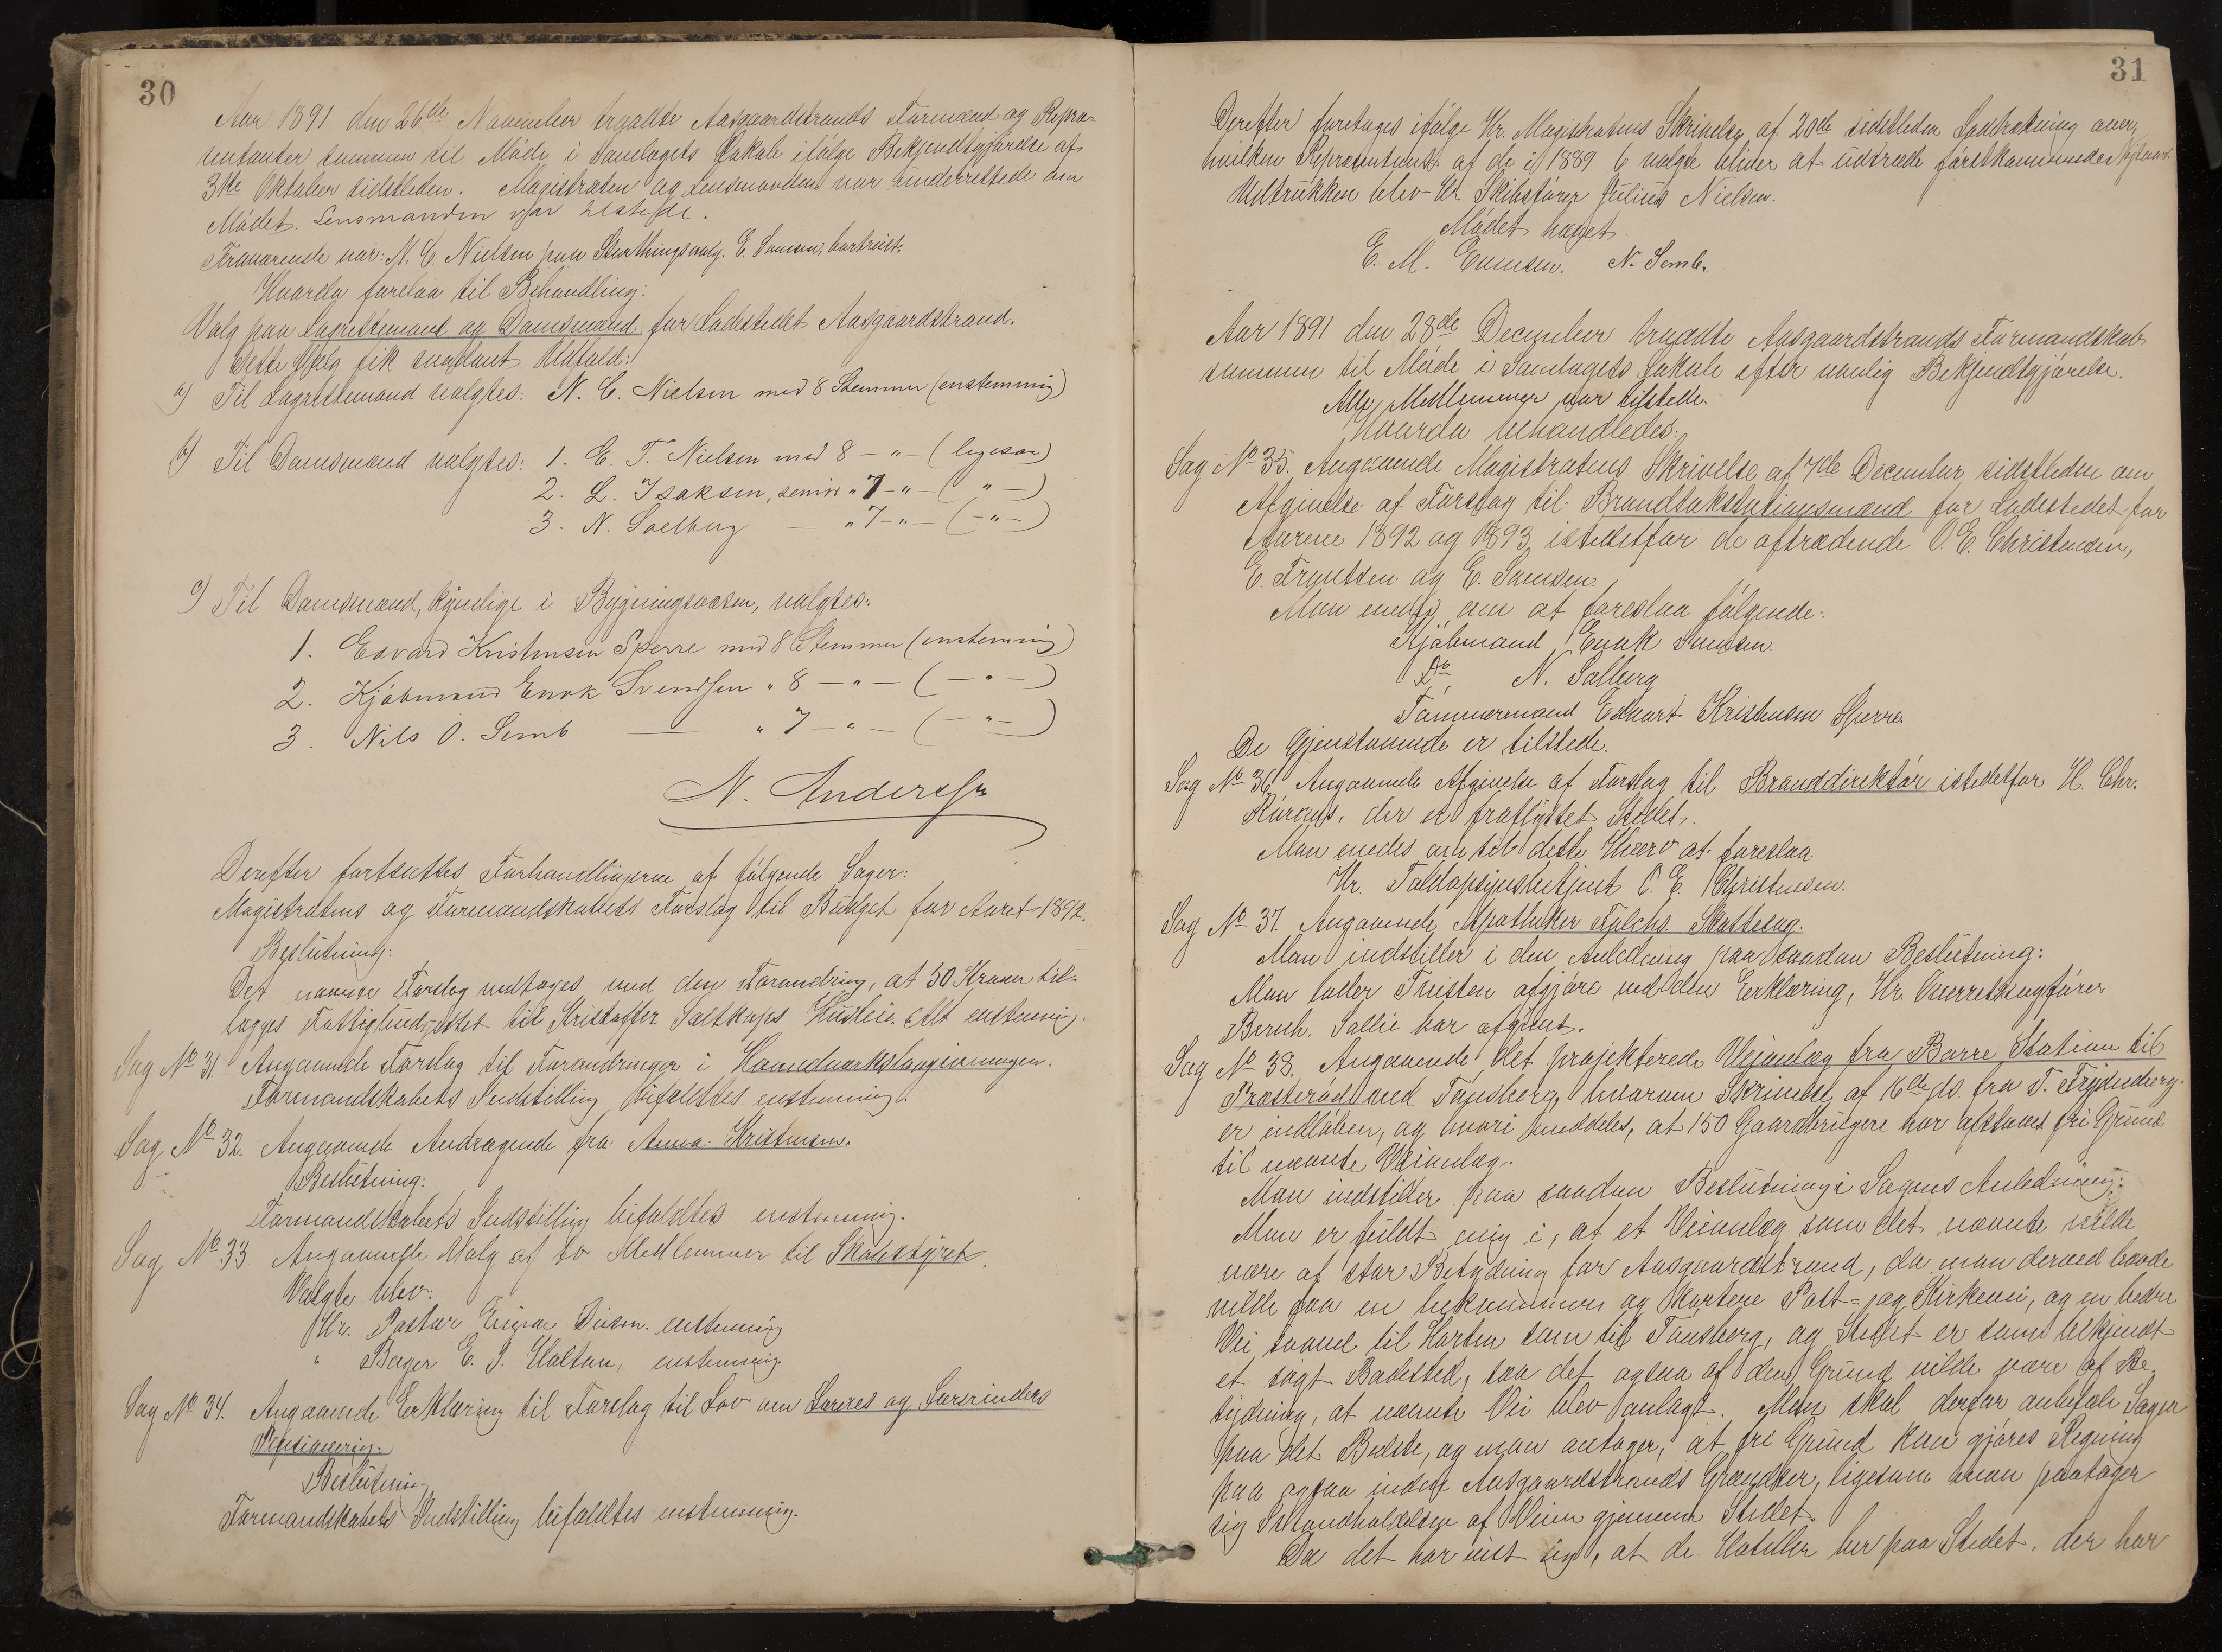 30
Aar 1891 den 26de November traadte Aasgaardstrands Formænd og Repræ-
sentanter sammen til Møde i Samlagets Lokale ifølge Bekjendtgjørelse af
31te Oktober sidstleden. Magistraten og Lensmanden var underrettede om
Mødet. Lensmanden var tilstede.
Fraværende var: N. C. Nielsen paa Storthingsvalg. E. Samsen, bortreist.
Hvorda forelaa til Behandling:
Valg paa Lagrettemænd og Domsmænd for Ladestedet Aasgaardstrand.
Dette Valg fik saadant Udfald:
a) Til Lagrettemænd valgtes: N. C. Nielsen med 8 Stemmer (enstemmig)
b) Til Domsmænd valgtes: 1. E. T. Nielsen med 8 — " — (ligesaa)
2. L. Isaksen, senior " 7 — " — ( " — )
3. N. Solberg — " 7 — " — ( — " — )
c) Til Domsmænd, kyndige i Bygningsvæsen, valgtes:
1. Edvard Kristensen Sperre med 8 Stemmer (enstemmig)
2. Kjøbmand Enok Svendsen " 8 — " — ( — " — )
3. Nils O. Semb — " 7 — " — ( — " — )
N. Anderssen
Derefter fortsattes Forhandlingerne af følgende Sager:
Magistratens og Formandskabets Forslag til Budget for Aaret 1892.
Beslutning:
Det nævnte Forslag vedtages med den Forandring, at 50 Kroner til-
lægges Fattigbudgettet til Kristoffer Husleie. Alt enstemmig.
Sag No 31 Angaaende Forslag til Forandringer i Haandverkslovgivningen.
Formandskabets Indstilling bifaldtes enstemmig.
Sag No 32. Angaaende Andragende fra Anna Kristensen.
Beslutning:
Formandskabets Indstilling bifaldtes enstemmig.
Sag No 33 Angaaende Valg af to Medlemmer til Skolestyret.
Valgte blev:
Hr. Pastor enstemmig
" Bager E. J. Holtan, enstemmig
Sag No 34. Angaaende Erklæring til Forslag til Lov om Læreres og Lærerinders
Pensionering.
Beslutning:
Formandskabets Indstilling bifaldtes enstemmig.
31
Derefter foretages ifølge Hr. Magistratens Skrivelse af 20de sidstleden Lodtrækning over,
hvilken Representant af de i 1889 6 valgte bliver at udtræde førstkommende Nytaar.
Udtrukken blev Hr. Skibsfører Julius Nielsen.
Mødet hævet.
E. M. Evensen. N. Semb.
Aar 1891 den 28de December traadte Aasgaardstrands Formandskab
sammen til Møde i Samlagets Lokale efter vanlig Bekjendtgjørelse.
Alle Medlemmer var tilstede.
Hvorda behandledes:
Sag No 35. Angaaende Magistratens Skrivelse af 7de December sidstleden om
Afgivelse af Forslag til Brandtakstationsmænd for Ladestedet for
Aarene 1892 og 1893 istedetfor de aftrædende O. E. Christensen,
E. Frantsen og E. Samsen.
Man enedes om at foreslaa følgende:
Kjøbmand Enok
Do N. Solberg
Tømmermand Edvart Kristensen Sperre
De Gjenstaaende er tilstede.
Sag No 36. Angaaende Afgivelse af Forslag til Branddirektør istedetfor H. Chr.
der er fraflyttet Stedet.
Man enedes om til dette Hverv at foreslaa
Hr. Toldopsynsbetjent O. E. Christensen.
Sag No 37. Angaaende Apotheker Skattesag.
Man indstiller i den Anledning paa saadan Beslutning:
Man lader Tvisten afgjøre ved den Erklæring, Hr. Overretssagfører
Bernh. har afgivet.
Sag No 38. Angaaende det projekterede Veianlæg fra Borre Station til
Præsterød ved Tønsberg, hvorom Skrivelse af 16de ds. fra
er indløben, og hvori meddeles, at 150 Gaardbrugere har afstaaet fri Grund
til nævnte Veianlæg.
Man indstiller paa saadan Beslutning i Sagens Anledning:
Man er fuldt enig i, at et Veianlæg som det nævnte vilde
være af stor Betydning for Aasgaardstrand, da man derved baade
vilde faa en bekvemmere og kortere Post- og Kirkevei, og en bedre
Vei saavel til Horten som til Tønsberg, og Stedet er som bekjendt
et søgt Badested, saa det ogsaa af den Grund vilde være af Be-
tydning, at nævnte Vei blev anlagt. Man skal derfor anbefale Sagen
paa det Bedste, og man antager, at fri Grund kan gjøres Regning
paa ogsaa inden Aasgaardstrands Grændser, ligesom man paatager
sig Istandholdelsen af Veien gjennem Stedet.
Da det har vist sig, at de her paa Stedet, der har